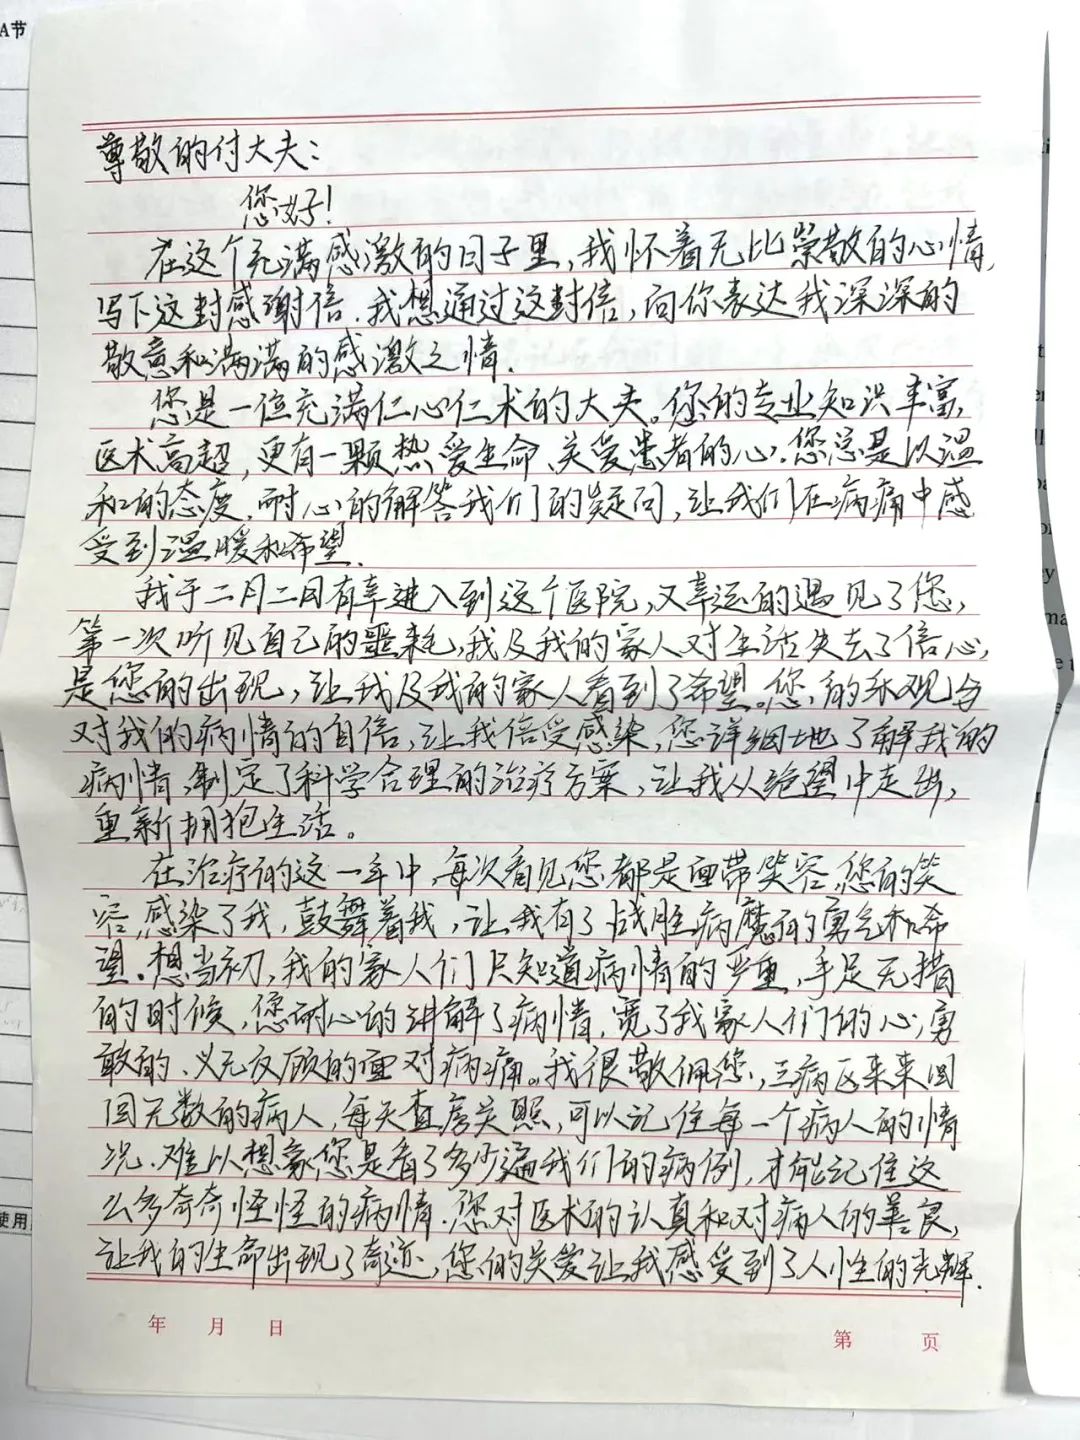 A节
尊敬的付大夫：
您好！
在这个充满感激的日子里，我怀着无比崇敬的心情，
写下这封感谢信．我想通过这封信，向你表达我深深的
敬意和满满的感激之情．
您是一位充满仁心仁术的大夫。您的专业知识丰富，
医术高超，更有一颗热爱生命、关爱患者的心．您总是以温
和的态度，耐心的解答我们的疑问，让我们在病痛中感
受到温暖和希望．
我于二月二日有幸进入到这个医院，又幸运的遇见了您，
第一次听见自己的噩耗，我及我的家人对生活失去了信心，
是您的出现，让我及我的家人看到了希望。您，的乐观与
对我们病情的自信，让我倍受感染，您详细地了解我的
病情，制定了科学合理的治疗方案，让我从绝望中走出，
重新拥抱生活。
在治疗的这一年中，每次看见您都是面带笑容，您的笑
容，感染了我，鼓舞着我，让我有了战胜病魔的勇气和希
望．想当初，我的家人们只知道病情的严重，手足无措
的时候，您耐心的讲解了病情，宽了我家人们的心，勇
敢的、义无反顾的面对病痛。我很敬佩您，三病区来来回
回无数的病人，每天查房关照，可以记住每一个病人的情
况．难以想象您是看了多少遍我们的病例，才能记住这
么多奇奇怪怪的病情．您对医术的认真和对病人的善良，
让我的生命出现了奇迹，您的关爱让我感受到了人性的光辉．
使用
年 月 日
第 页